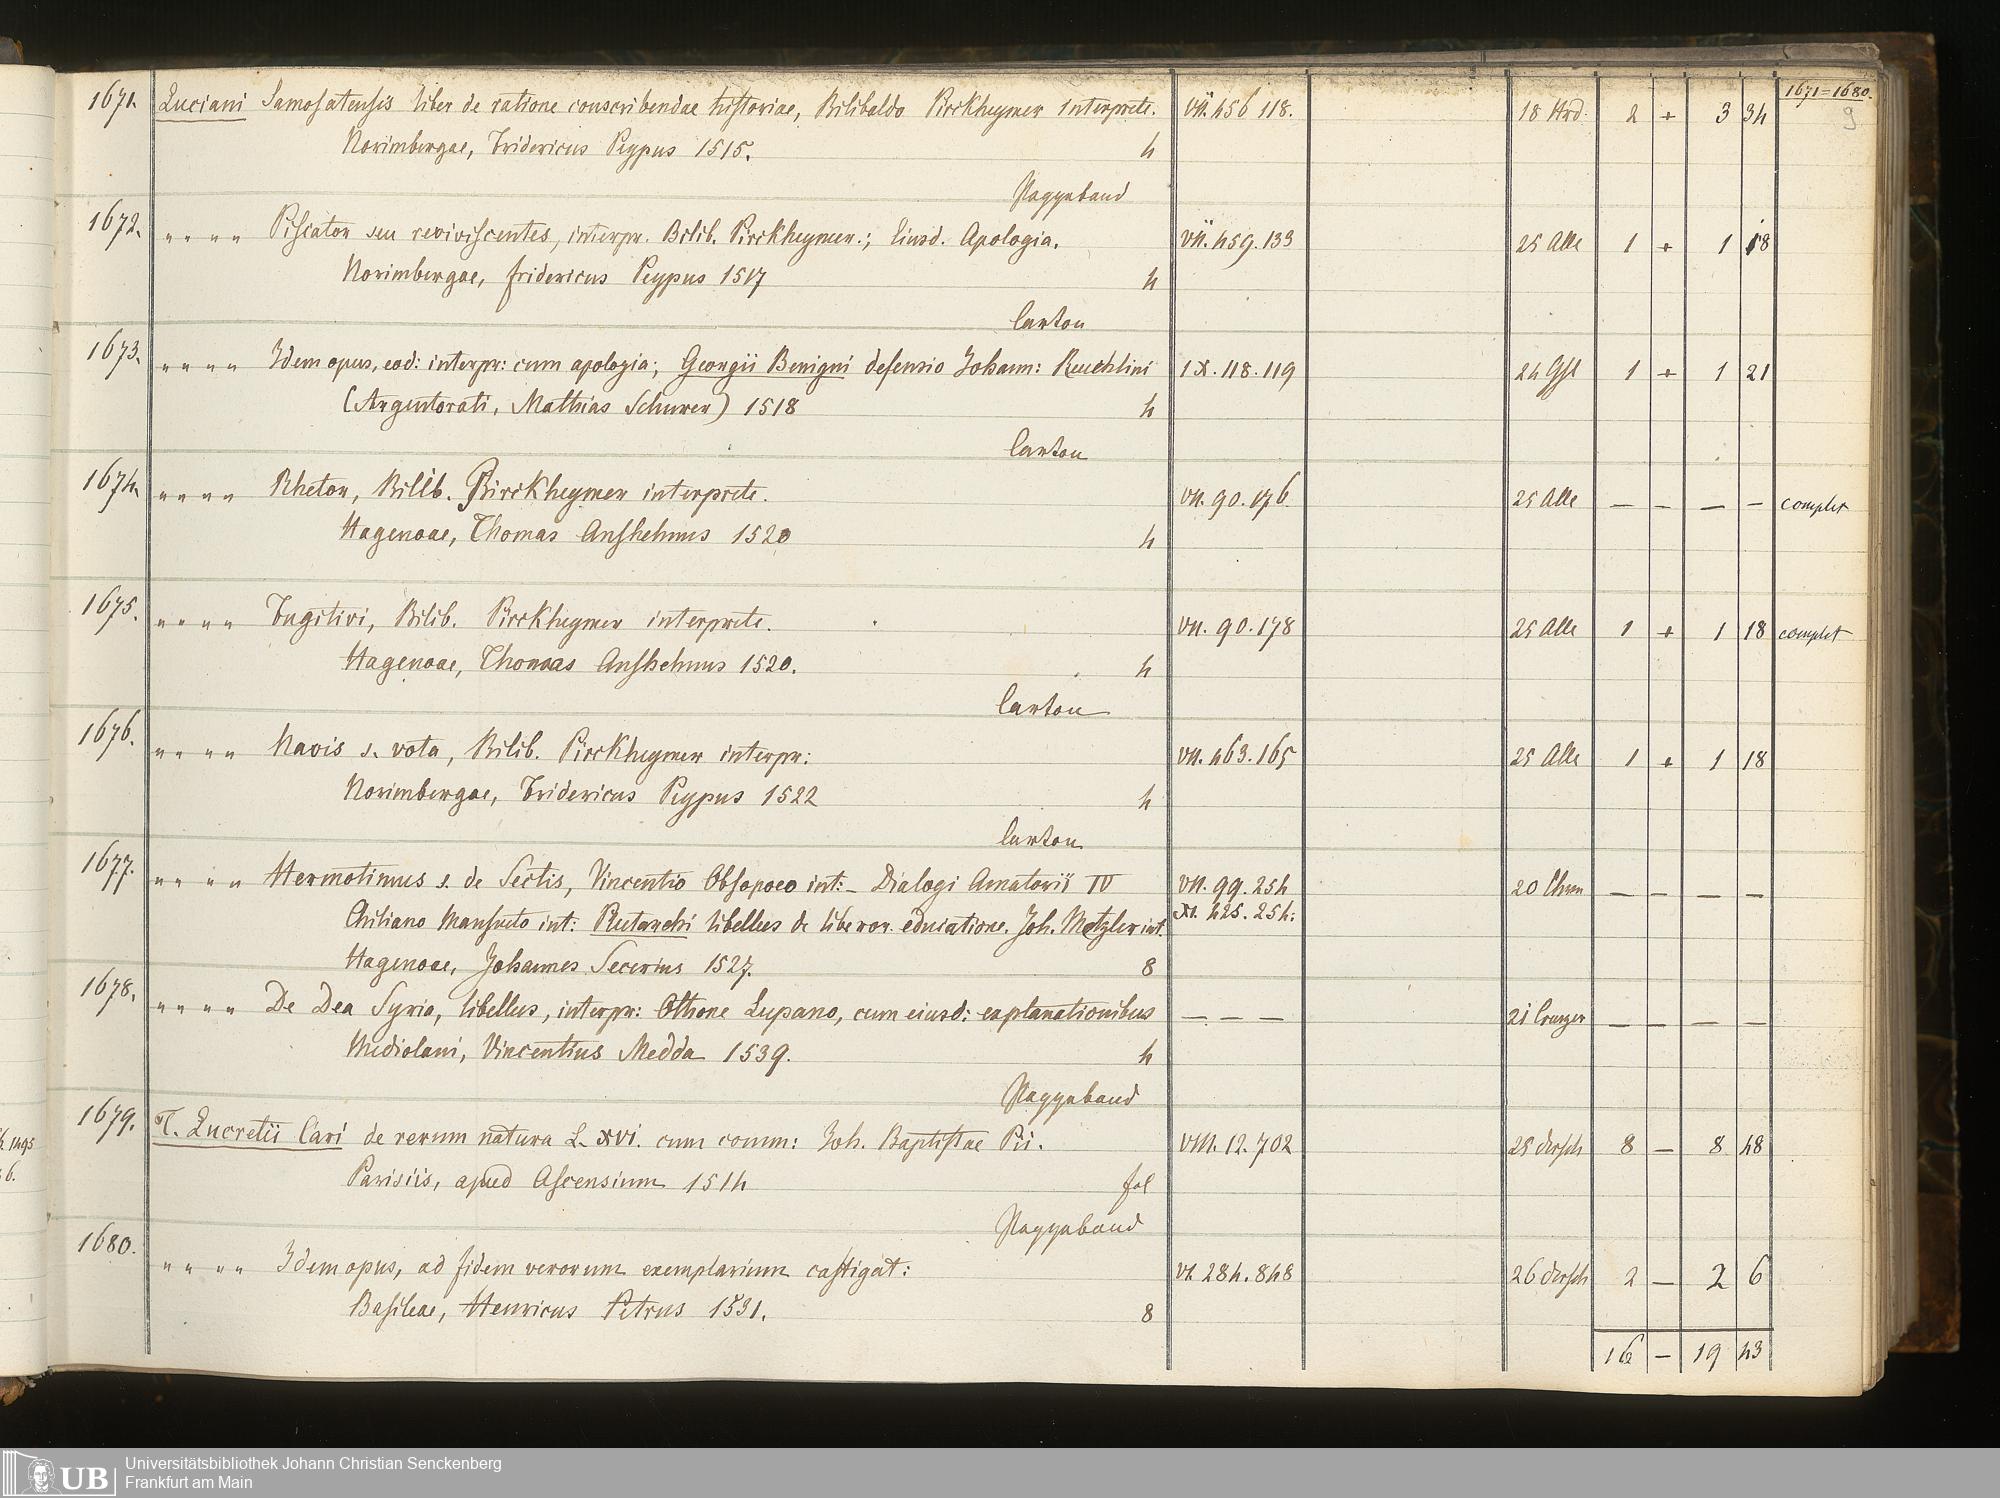 1671=1680.
9
1671. Luciani Samosatensis liber de ratione conscribendae historiae, Bilibaldo Pirckheymer interprete. VII. 456 118. 18 Hrd. 2 + 3 34
Norimbergae, Fridericus Peypus 1515. 4
Pappband
1672. " " " " Piscator seu reviviscentes, interpr. Bilib. Pirckheymer.; Eiusd. Apologia. VII. 459. 133 25 Alle 1 + 1 18
Norimbergae, Fridericus Peypus 1517 4
Carton
1673. " " " " Idem opus, eod: interpr: cum apologia; Georgii Benigni defensio Johann: Reuchlini IX. 118. 119 24 1 + 1 21
(Argentorati, Mathias Schurer) 1518 4
Carton
1674. " " " " Rhetor, Bilib. Pirckheymer interprete. VII. 90. 176. 25 Alle — — — — complet
Hagenoae, Thomas Anshelmus 1520 4
1675. " " " " Fugitivi, Bilib. Pirckheymer interprete. VII. 90. 178 25 Alle 1 + 1 18 complet
Hagenoae, Thomas Anshelmus 1520. 4
Carton
1676. " " " " Navis s. vota, Bilib. Pirckheymer interpr: VII. 463. 165 25 Alle 1 + 1 18
Norimbergae, Fridericus Peypus 1522 4
Carton
1677. " " " " Hermotimus s. de Sectis, Vincentio Obsopoeo int:– Dialogi Amatorii IV VII. 99. 254 20 — — — —
Chiliano Mansueto int: Plutarchi libellus de liberor. educatione. Joh. Metzler int. XI. 425. 254:
Hagenoae, Johannes Secerius 1527. 8
1678. " " " " De Dea Syria, libellus, interpr: Othone Lupano, cum eiusd: explanationibus — — — 21 — — — —
Mediolani, Vincentius Medda 1539. 4
Pappband
1679. T. Lucretii Cari de rerum natura L. XVI. cum comm: Joh. Baptistae Pii. VIII. 12. 702 25 dersch 8 — 8 48
Parisiis, apud Ascensium 1514 fol
Pappband
1680. " " " " Idem opus, ad fidem verorum exemplarium castigat: VI. 284. 848 26 dersch 2 — 2 6
Basileae, Henricus Petrus 1531. 8
16 — 19 43
UB Universitätsbibliothek Johann Christian Senckenberg
Frankfurt am Main